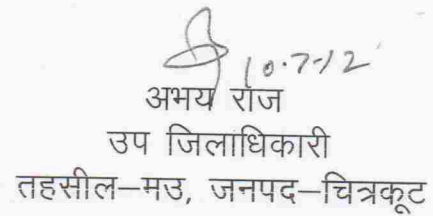 10.7-12
अभय राज
उप जिलाधिकारी
तहसील–मउ, जनपद–चित्रकूट